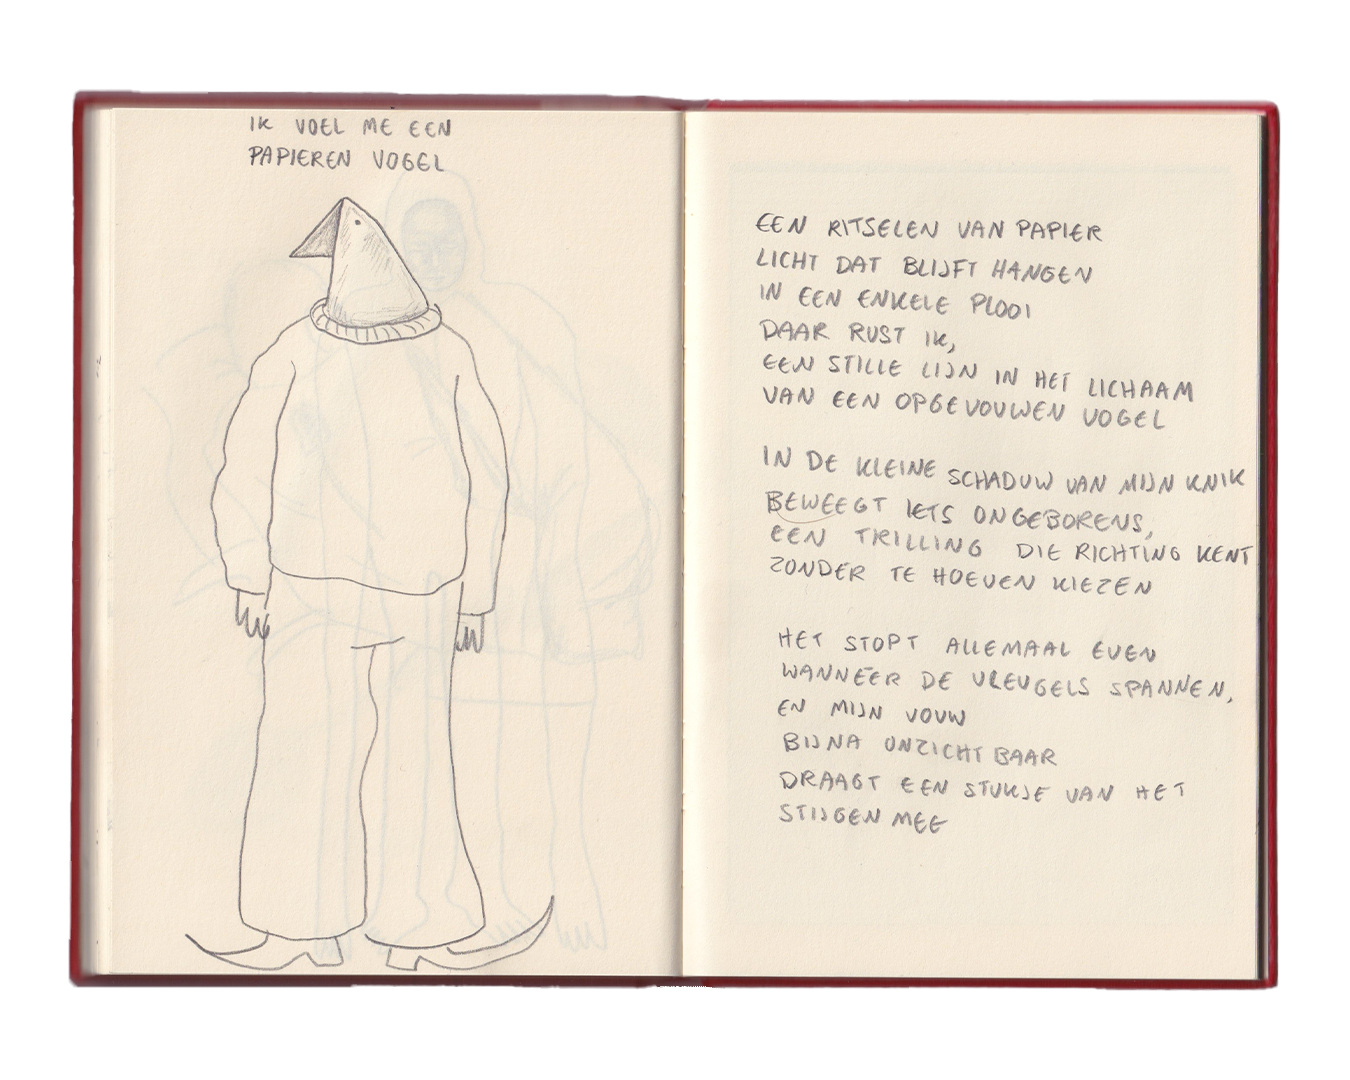 IK VOEL ME EEN
PAPIEREN VOGEL
EEN RITSELEN VAN PAPIER
LICHT DAT BLIJFT HANGEN
IN EEN ENKELE PLOOI
DAAR RUST IK,
EEN STILLE LIJN IN HET LICHAAM
VAN EEN OPGEVOUWEN VOGEL
IN DE KLEINE SCHADUW VAN MIJN KNIK
BEWEEGT IETS ONGEBORENS,
EEN TRILLING DIE RICHTING KENT
ZONDER TE HOEVEN KIEZEN
HET STOPT ALLEMAAL EVEN
WANNEER DE VLEUGELS SPANNEN,
EN MIJN VOUW
BIJNA ONZICHTBAAR
DRAAGT EEN STUKJE VAN HET
STIJGEN MEE